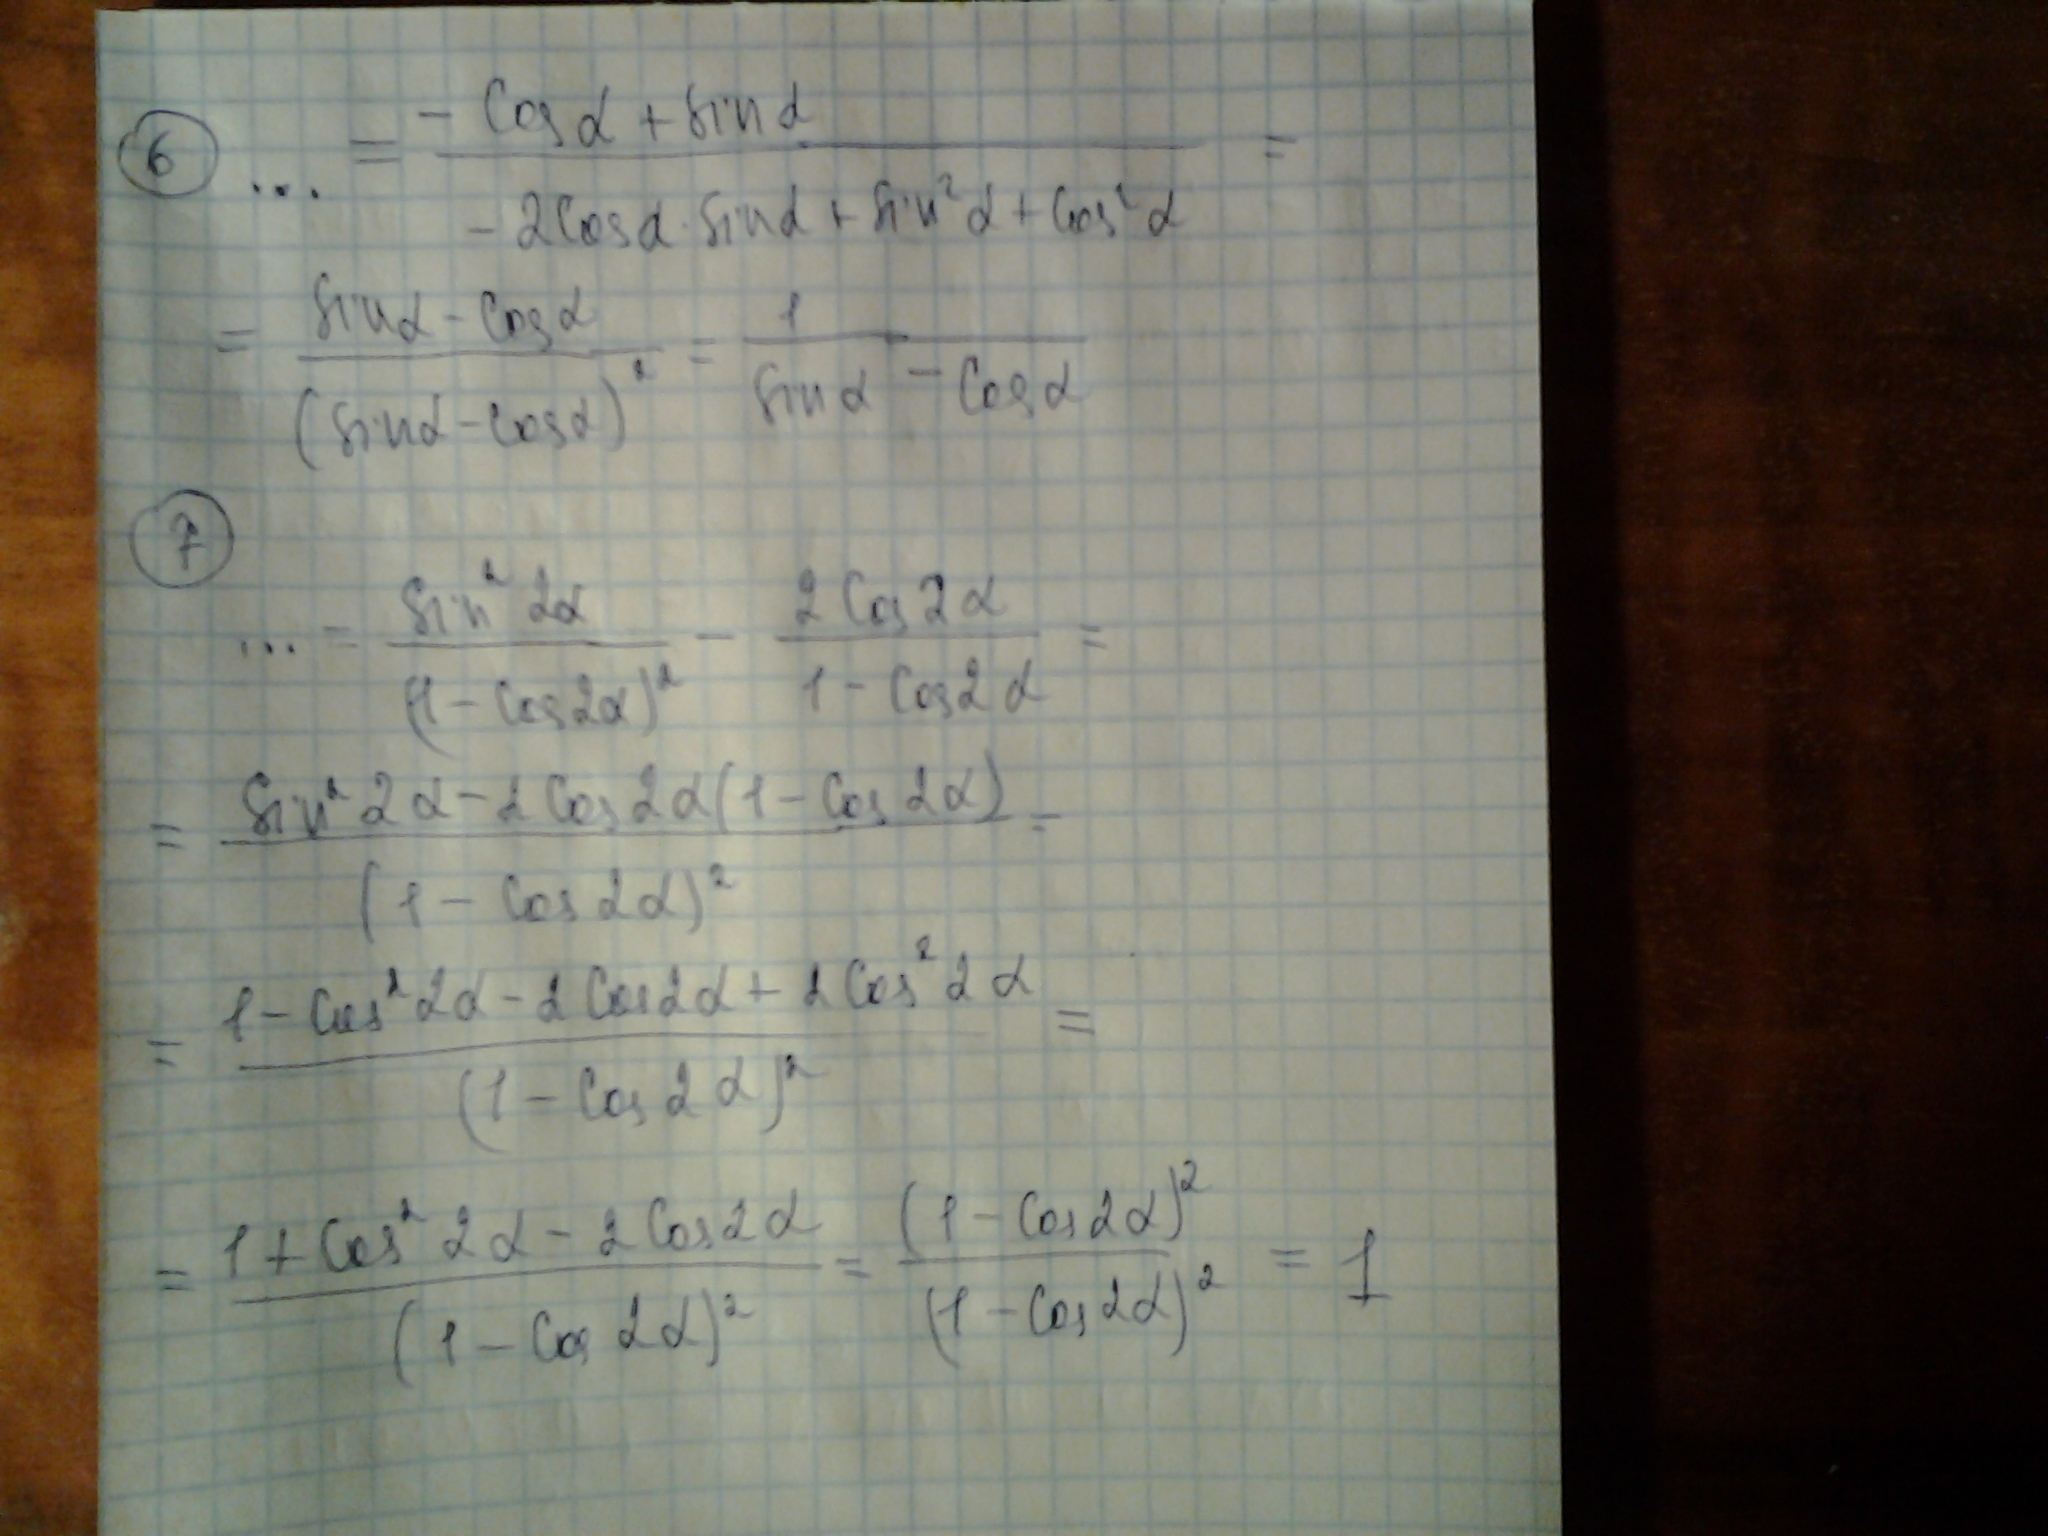 6 ... = (- Cosα + Sinα) / (- 2Cosα · Sinα + Sin²α + Cos²α) =
= (Sinα - Cosα) / (Sinα - Cosα)² = 1 / (Sinα - Cosα)
7
... = Sin² 2α / (1 - Cos2α)² - 2 Cos2α / (1 - Cos2α) =
= (Sin² 2α - 2 Cos2α(1 - Cos2α)) / (1 - Cos2α)² =
= (1 - Cos² 2α - 2 Cos2α + 2 Cos² 2α) / (1 - Cos2α)² =
= (1 + Cos² 2α - 2 Cos2α) / (1 - Cos2α)² = (1 - Cos2α)² / (1 - Cos2α)² = 1